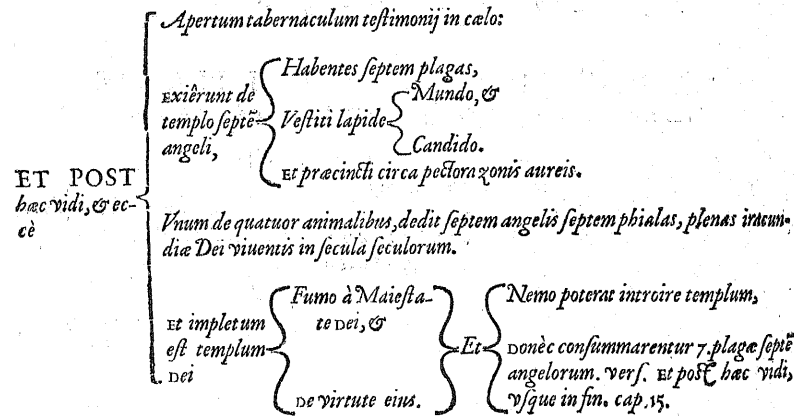 Apertum tabernaculum teſtimonij in cælo:
Habentes ſeptem plagas,
Exiêrunt de
templo ſeptẽ
angeli,
Veſtiti lapide
Mundo, &
Candido.
Et præcincti circa pectora zonis aureis.
ET POST
hæc vidi, & ec-
cè
Vnum de quatuor animalibus, dedit ſeptem angelis ſeptem phialas, plenas iracun-
diæ Dei viuentis in ſecula ſeculorum.
Et impletum
eſt templum
Dei
Fumo à Maieſta-
te Dei, &
De virtute eius.
Et
Nemo poterat introire templum,
Donèc conſummarentur 7. plagæ ſeptẽ
angelorum. verſ. Et poſt hæc vidi,
vſque in fin. cap. 15.